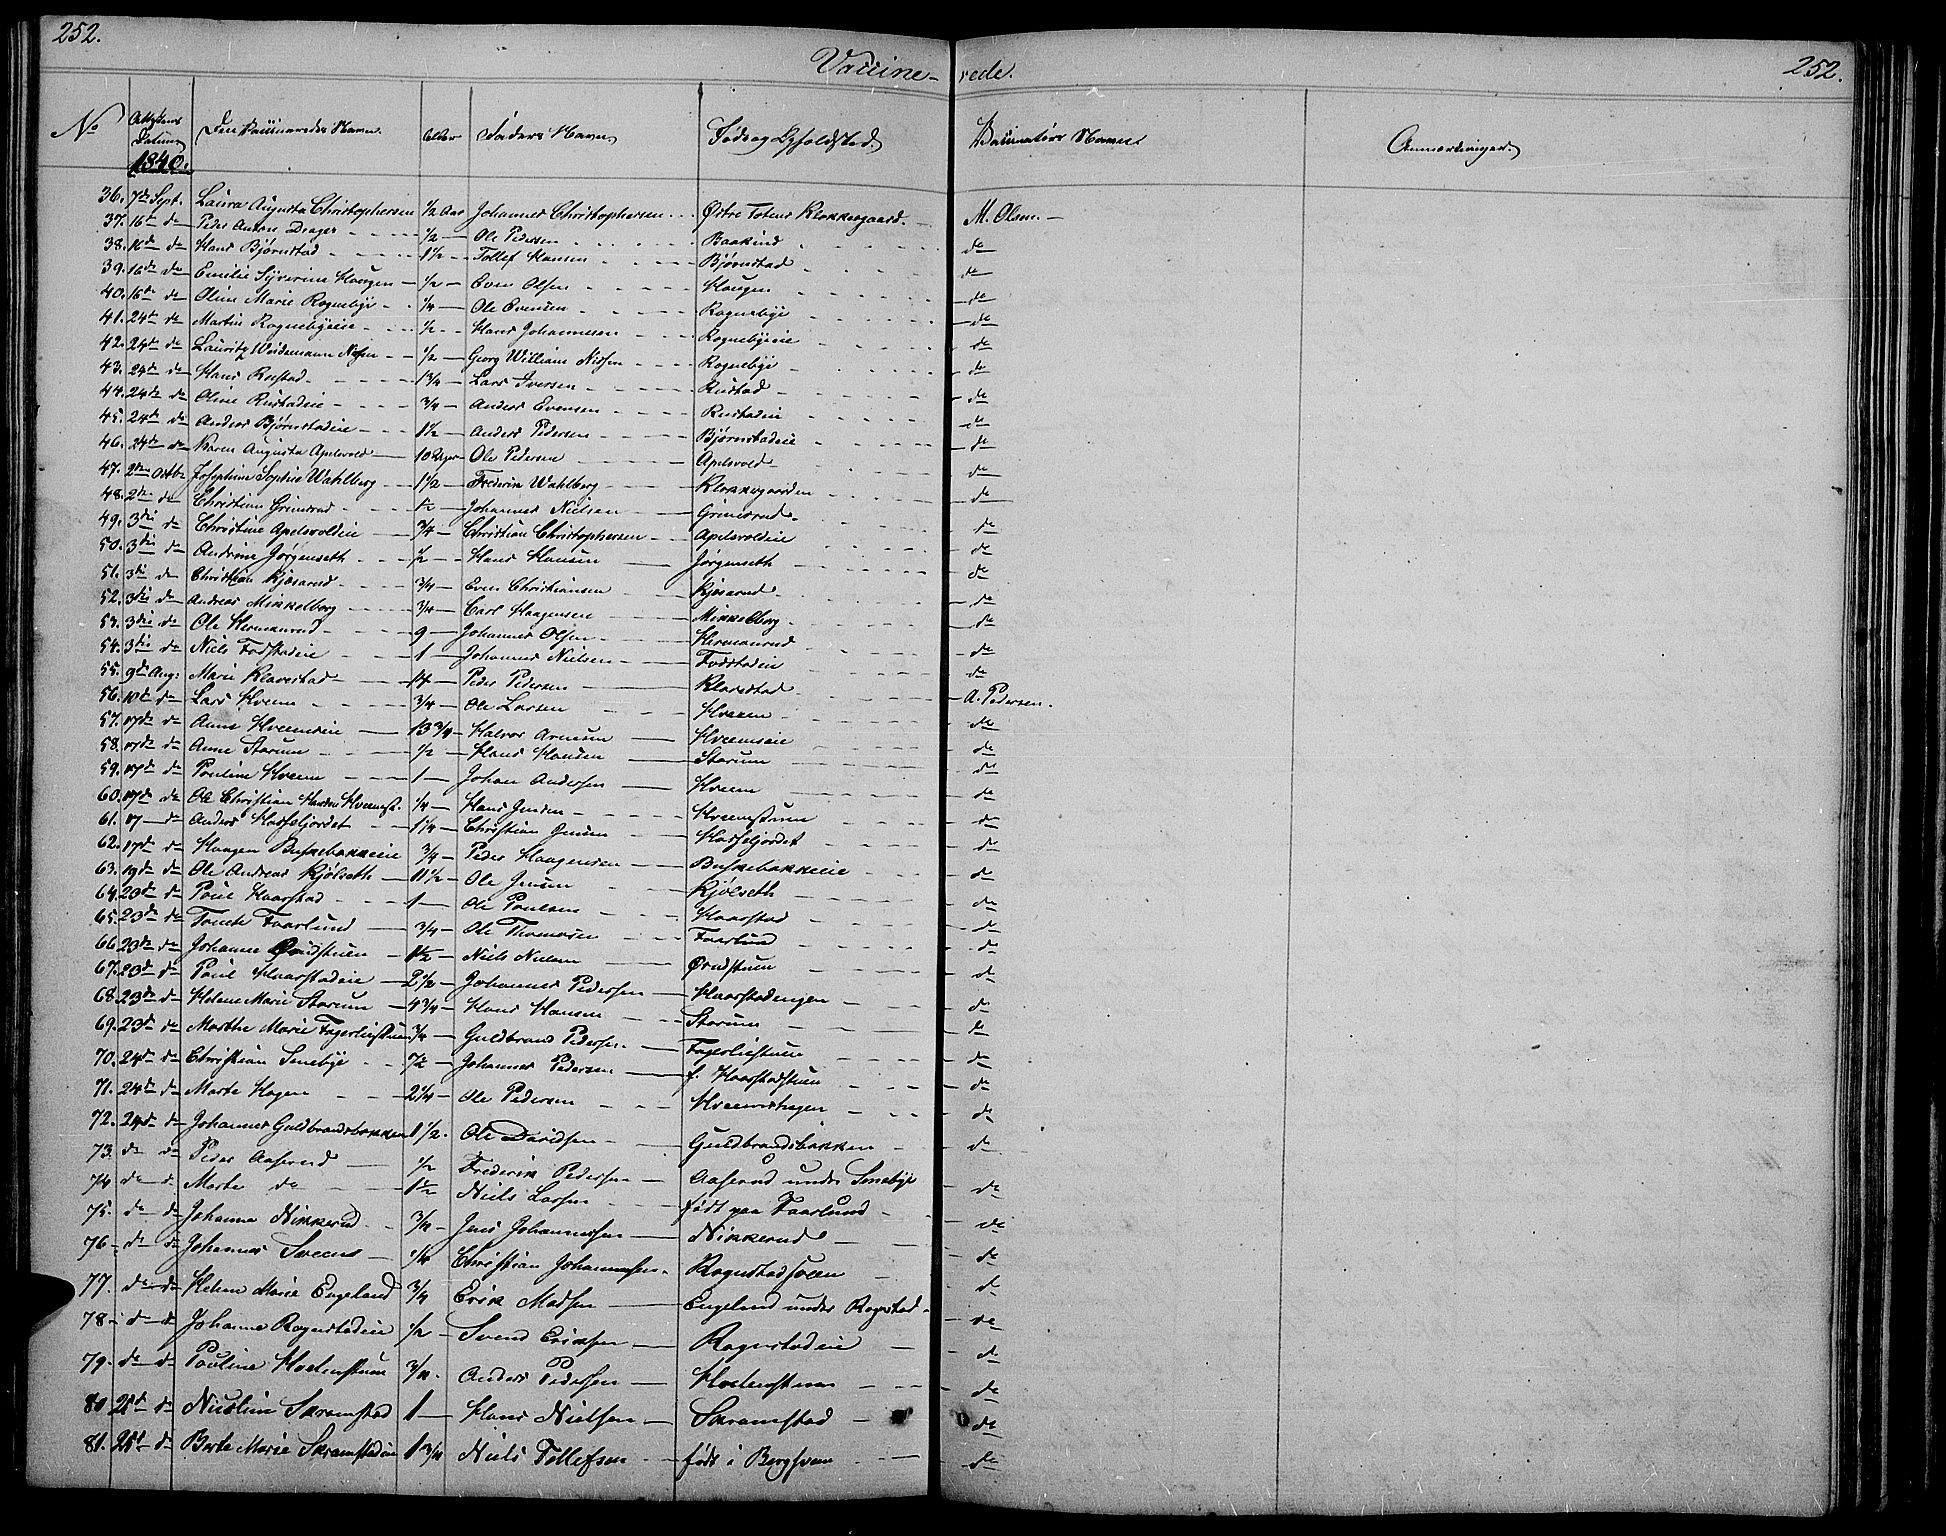 252. Vaccine- rede. 252.
No Attestens Datum Den Vaccineredes Navn. Alder Faders Navn Føde og Opholdsted. Vaccinatörs Navn. Anmærkninger.
1840.
36. 7de Sept. Laura Augusta Christophersen 1/2 Aar Johannes Christophersen Østre Totens Klokkergaard. M. Olsen.
37. 16de do Peder Anton Drager 1/2 Ole Pedersen Baakind do
38. 16de do Hans Bjørnstad 1 1/2 Tollef Hansen Bjørnstad do
39. 16de do Emilie Syverine Haugen 1/2 Even Olsen Haugen do
40. 16de do Oline Marie Rognebye 1/4 Ole Evensen Rognebye do
41. 24de do Martin Rognebyeie 1/2 Hans Johannesen Rognebyeie do
42. 24de do Lauritz Weidemann Nissen 1/2 Georg William Nissen Rognebye do
43. 24de do Hans Rustad 1 3/4 Lars Iversen Rustad do
44. 24de do Oline Rustadeie 3/4 Anders Evensen Rustadeie do
45. 24de do Andreas Bjørnstadeie 1 1/2 Anders Pedersen Bjørnstadeie do
46. 24de do Karen Augusta Apelsvold 10 Uger Ole Pedersen Apelsvold do
47. 2den Octbr Josephine Sophie Wahlberg 1 1/2 Frederik Wahlberg Klokkergaarden do
48. 2den do Christian Grimsrud 1/2 Johannes Nielsen Grimsrud do
49. 3die do Christine Apelsvoldeie 3/4 Christian Christophersen Apelsvoldeie do
50. 3die do Andrine Jørgenseth 1/2 Hans Hansen Jørgenseth do
51. 3die do Christian Kjøserud 3/4 Even Christiansen Kjøserud do
52. 3die do Andreas Mikkelborg 3/4 Carl Haagensen Mikkelborg do
53. 3die do Ole Hermanrud 9 Johannes Olsen Hermanrud do
54. 3die do Niels Fodstadeie 1 Johannes Nielsen Fodstadeie do
55. 9de Aug: Marie Klavestad 14 Peder Pedersen Klavestad A. Pedersen.
56. 10de do Lars Hveem 3/4 Ole Larsen Hveem do
57. 17de do Anne Hveemseie 13 3/4 Halvor Arnesen Hveemseie do
58. 17de do Anne Starum 1/2 Hans Hansen Starum do
59. 17de do Pauline Hveem 1 Johan Andersen Hveem do
60. 17de do Ole Christian Hansen Hveemst. 1/4 Hans Jensen Hveemstuen do
61. 17 do Anders Hasseljordet 1 1/4 Christian Jensen Hasseljordet do
62. 17de do Haagen Buskebakkeie 3/4 Peder Haagensen Buskebakkeie do
63. 19de do Ole Andreas Kjölseth 11 1/2 Ole Jensen Kjölseth do
64. 20de do Poul Haarstad 1 Ole Poulsen Haarstad do
65. 23de do Tomte Faarlund 3/4 Ole Thomesen Faarlund do
66. 23de do Johanne Qvidstuen 1 1/2 Niels Nielsen Qvidstuen do
67. 23de do Poul Haarstadeie 2 1/2 Johannes Pedersen Haarstadengen do
68. 23de do Helene Marie Starum 4 3/4 Hans Hansen Starum do
69. 23de do Marthe Marie Fagerliestuen 3/4 Guldbrand Pedersen Fagerliestuen do
70. 24de do Christian Smebye 7 1/2 Johannes Pedersen f. Haarstadstuen do
71. 24de do Marte Hagen 2 1/4 Ole Pedersen Hveemshagen do
72. 24de do Johannes Guldbrandsbakken 1 1/2 Ole Davidsen Guldbrandsbakken do
73. do do Peder Aaserud 1/2 Frederik Pedersen Aaserud under Smebye do
74 do do Marte do 1 1/2 Niels Larsen født paa Faarlund do
75. do do Johanne Nikkerud 3/4 Jens Johannessen Nikkerud do
76 do do Johannes Sveen 1/4 Christian Johannesen Rognstadsveen do
77. do do Helene Marie Engeland 3/4 Erik Madsen Engeland under Rognstad do
78 do do Johanne Rognstadeie 1/2 Svend Eriksen Rognstadeie do
79. do do Pauline Holtenstuen 3/4 Anders Pedersen Holtenstuen do
80 25de do Nicoline Skramstad 1 Hans Nielsen Skramstad do
81. 25de do Berte Marie Skramstadeie 1 3/4 Niels Tollefsen født i Bergsveen do